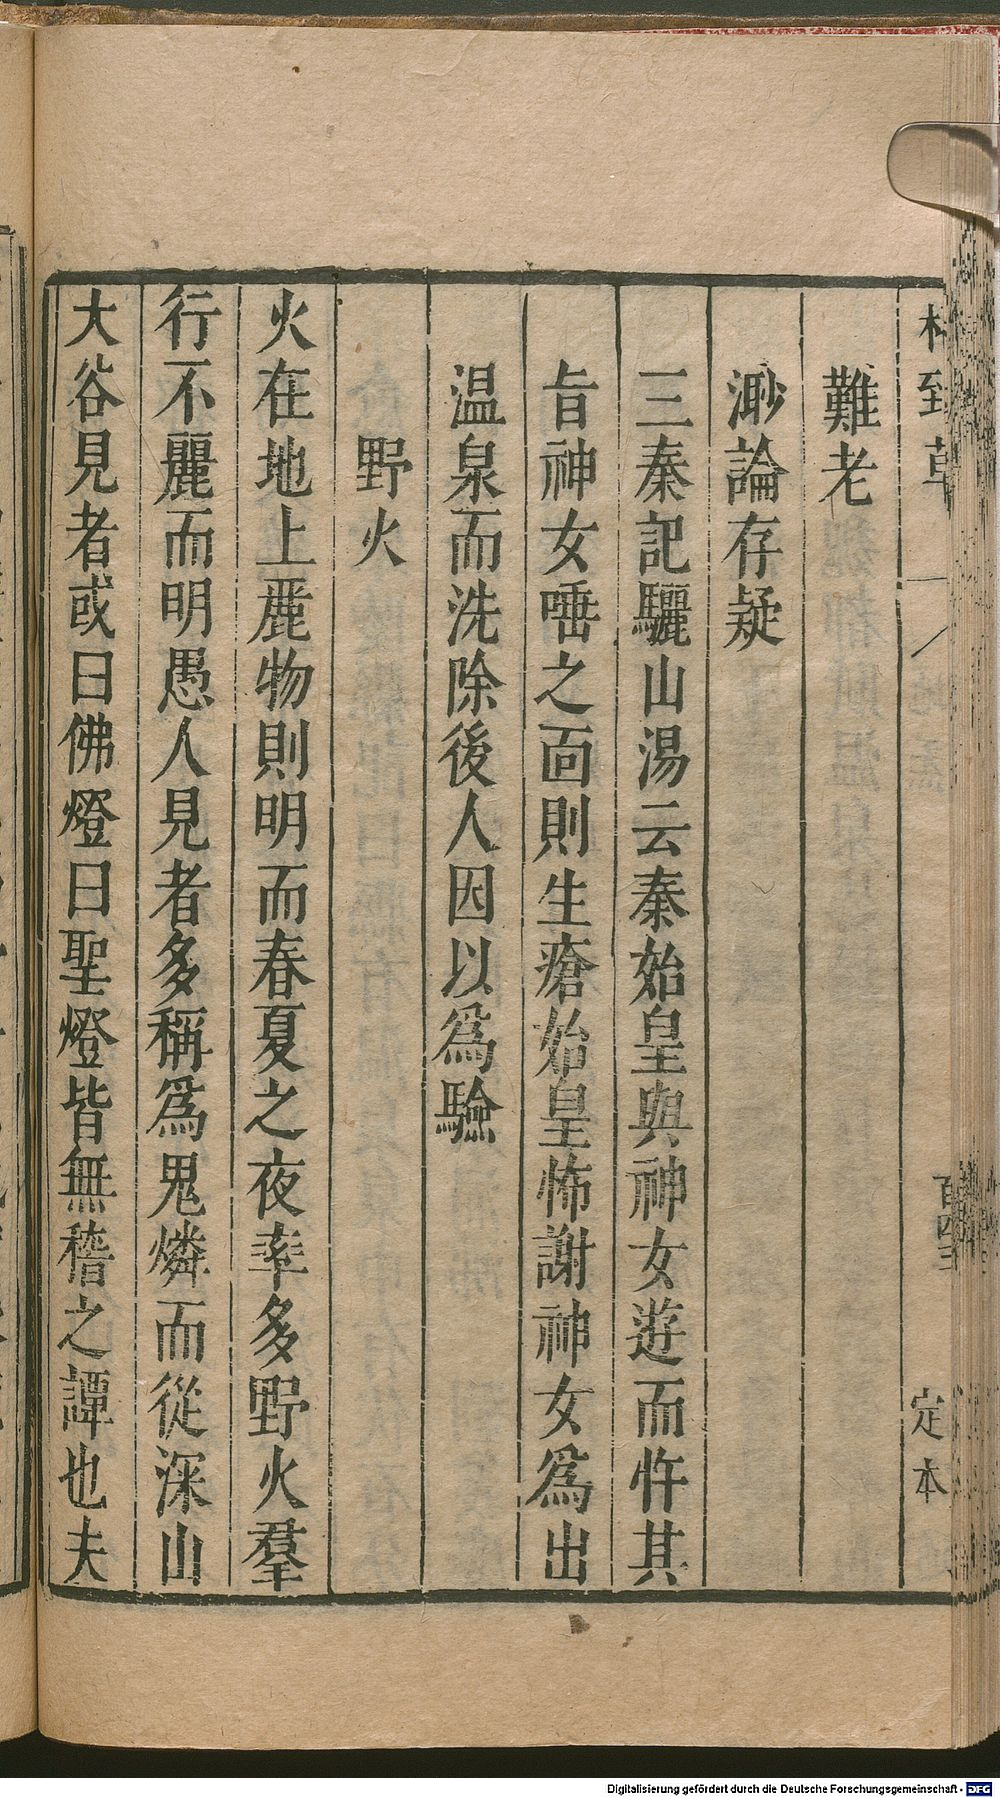 格致草
百四三
定本
難老
渺論存疑
三秦記驪山湯云秦始皇與神女遊而忤其
旨神女唾之面則生瘡始皇怖謝神女為出
温泉而洗除後人因以為驗
野火
火在地上麗物則明而春夏之夜率多野火羣
行不麗而明愚人見者多稱為鬼燐而從深山
大谷見者或曰佛燈曰聖燈皆無稽之譚也夫
Digitalisierung gefördert durch die Deutsche Forschungsgemeinschaft - DFG